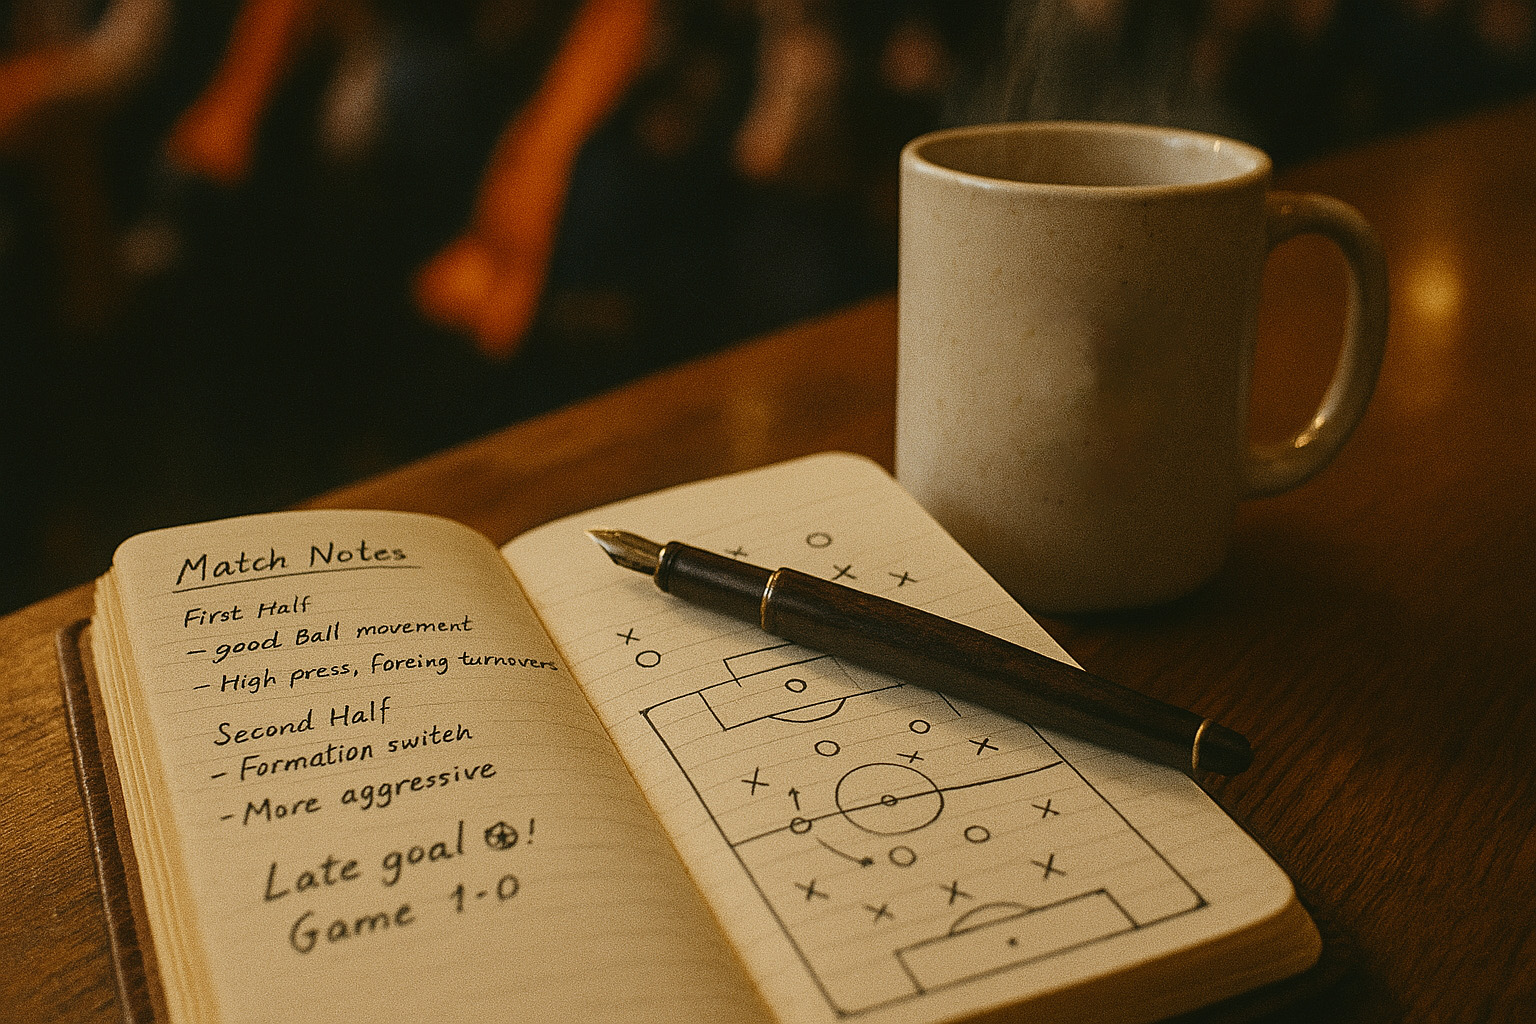 Match Notes
First Half
- good Ball movement
- High press, foreing turnovers
Second Half
- Formation switeh
- More aggressive
Late goal ⚽!
Game 1-0